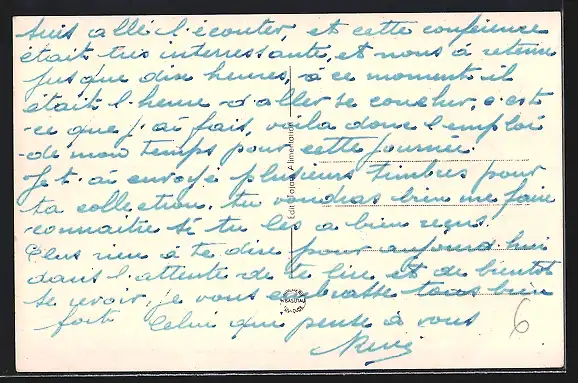 suis allé l'écouter, et cette conférence
était tres interressante, et nous à retenu
jusque dix heures, à ce moment il
était l'heure d'aller se coucher, c'est
ce que j'ai fais, voila donc l'emploi
de mon temps pour cette journée.
Je t'ai envoyé plusieurs timbres pour
ta collection. tu voudras bien me faire
connaitre si tu les a bien reçus.
Plus rien à te dire pour aujourd'hui
dans l'attente de te lire et de bientot
se revoir, je vous embrasse tous bien
fort. Celui qui pense à vous
6
Edit.
Alimentation